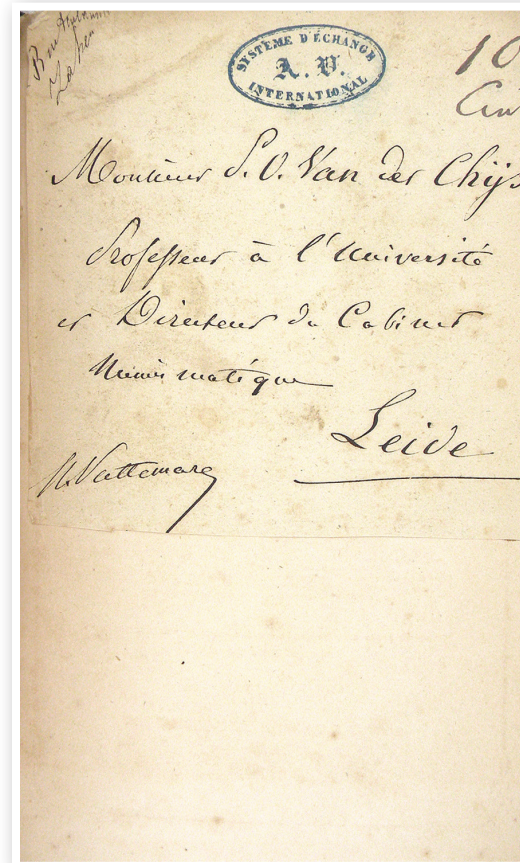 SYSTÈME D'ÉCHANGE
A. V.
INTERNATIONAL
10
Monsieur P. O. Van der Chijs
Professeur à l'Université
et Directeur du Cabinet
Numismatique
Leide
A. Vattemare